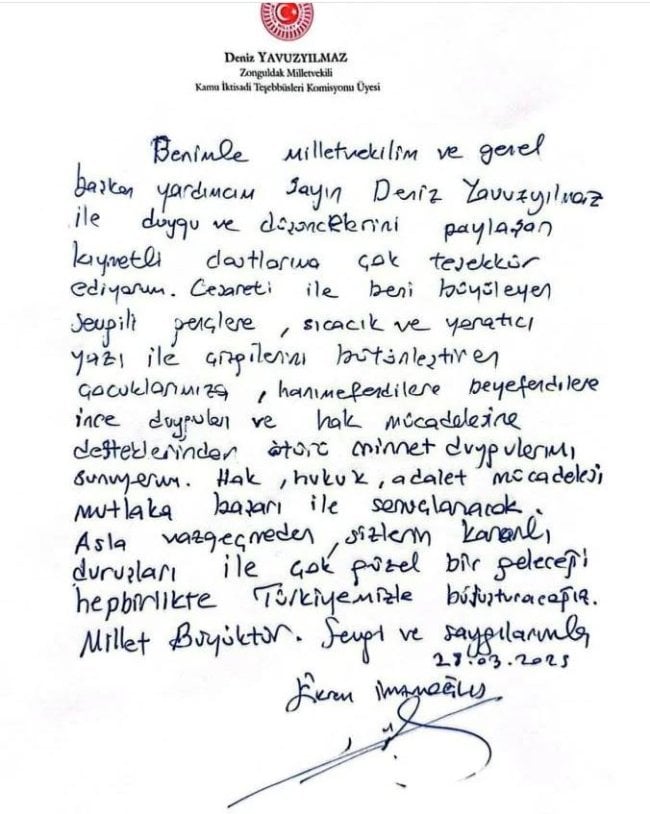 Deniz YAVUZYILMAZ
Zonguldak Milletvekili
Kamu İktisadi Teşebbüsleri Komisyonu Üyesi
Benimle milletvekilim ve genel
başkan yardımcım Sayın Deniz Yavuzyılmaz
ile duygu ve düşüncelerini paylaşan
kıymetli dostlarıma çok teşekkür
ediyorum. Cesareti ile beni büyüleyen
sevgili gençlere, sıcacık ve yaratıcı
yazı ile çizgilerini bütünleştiren
çocuklarımıza, hanımefendilere beyefendilere
ince duyguları ve hak mücadelesine
desteklerinden ötürü minnet duygularımı
sunuyorum. Hak, hukuk, adalet mücadelesi
mutlaka başarı ile sonuçlanacak.
Asla vazgeçmeden, sizlerin kararlı
duruşları ile çok güzel bir geleceği
hepbirlikte Türkiyemizle buluşturacağız.
Millet Büyüktür. Sevgi ve saygılarımla
Ekrem İMAMOĞLU